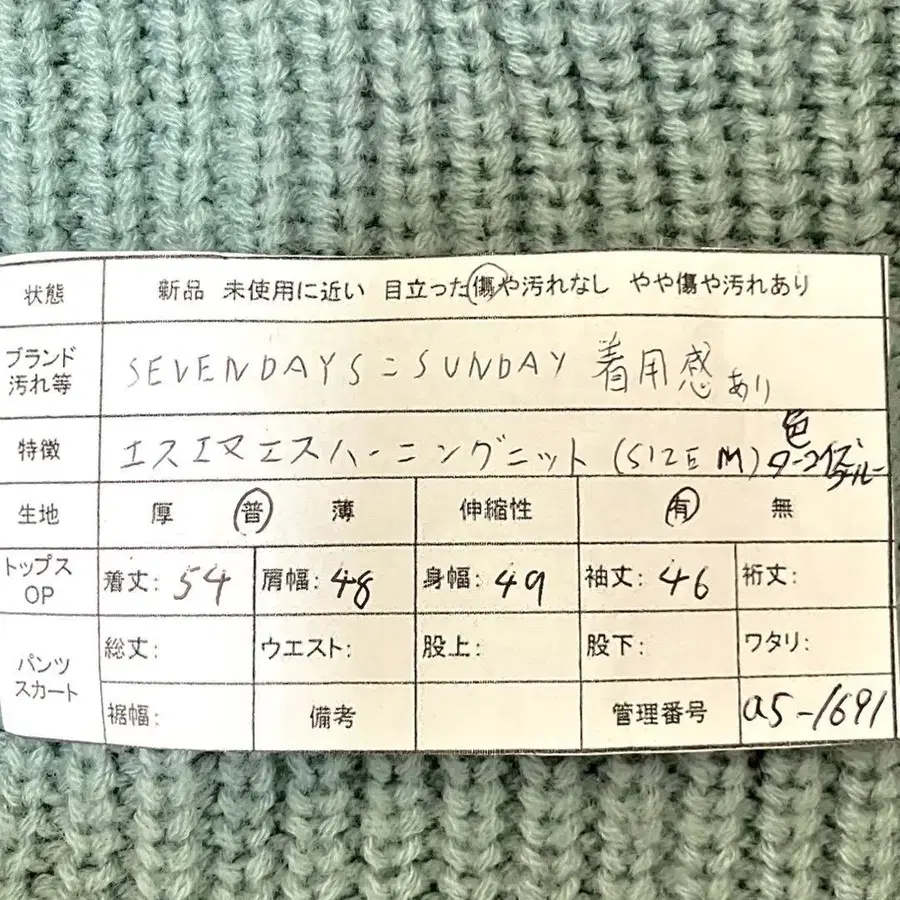 状態 新品 未使用に近い 目立った傷や汚れなし やや傷や汚れあり
ブランド
汚れ等 SEVENDAYS=SUNDAY 着用感あり
色
特徴 エスエマエスハーニングニット (SIZE M) ターコイズ
ブルー
生地 厚 普 薄 伸縮性 有 無
トップス
OP 着丈: 54 肩幅: 48 身幅: 49 袖丈: 46 裄丈:
総丈: ウエスト: 股上: 股下: ワタリ:
パンツ
スカート
裾幅: 備考 管理番号 a5-1691